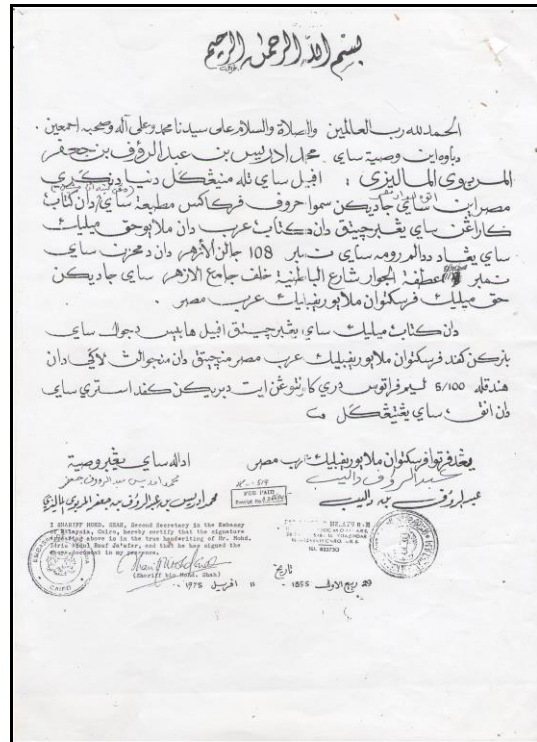 بسم الله الرحمن الرحيم
الحمد لله رب العالمين والصلاة والسلام على سيدنا محمد وعلى آله وصحبه اجمعين .
دباوه اين وصية ساي محمد ادريس بن عبد الرؤف بن جعفر
المربوي الماليزي : افبيل ساي تله منيڠݢل دنيا دنݢري
مصر اين ساي جاديكن سموا حروف فركاكس مطبعة ساي دان كتاب
كاراڠن ساي يڠ برچيتق دان كتاب عرب دان ملايو حق ميليك
ساي يڠ اد دالم رومه ساي نمبر 108 جالن الأزهر دان دمخزن ساي
نمبر عطفة الجوار شارع الباطنية خلف جامع الازهر ساي جاديكن
حق ميليك فرسكتوان ملايو ريفبليك عرب مصر .
دان كتاب ميليك ساي يڠ برچيتق افبيل هابيس دجوال ساي
بنركن كفد فرسكتوان ملايو ريفبليك عرب مصر منچيتق دان منجوالڽ لاݢي دان
هندقله 5/100 ليم فراتوس دري كاونتوڠن ايت دبريكن كفد استري ساي
دان انق٢ ساي يڠ تيڠݢل
يڠ دفرتوا فرسكتوان ملايو ريفبليك عرب مصر
عبد الرؤف بن داليب
اداله ساي يڠ بروصية
محمد ادريس عبد الرؤف جعفر
محمد ادريس بن عبد الرؤف بن جعفر المربوي الماليزي
FEE PAID
I SHARIFF MOHD. SHAH, Second Secretary in the Embassy
of Malaysia, Cairo, hereby certify that the signature
appearing above is in the true handwriting of Mr. Mohd.
Idris Abdul Rauf Ja'afar, and that he has signed the
above document in my presence.
(Shariff bin Mohd. Shah)
تاريخ
29 ربيع الاول 1395
11 افريل 1975
CAIRO